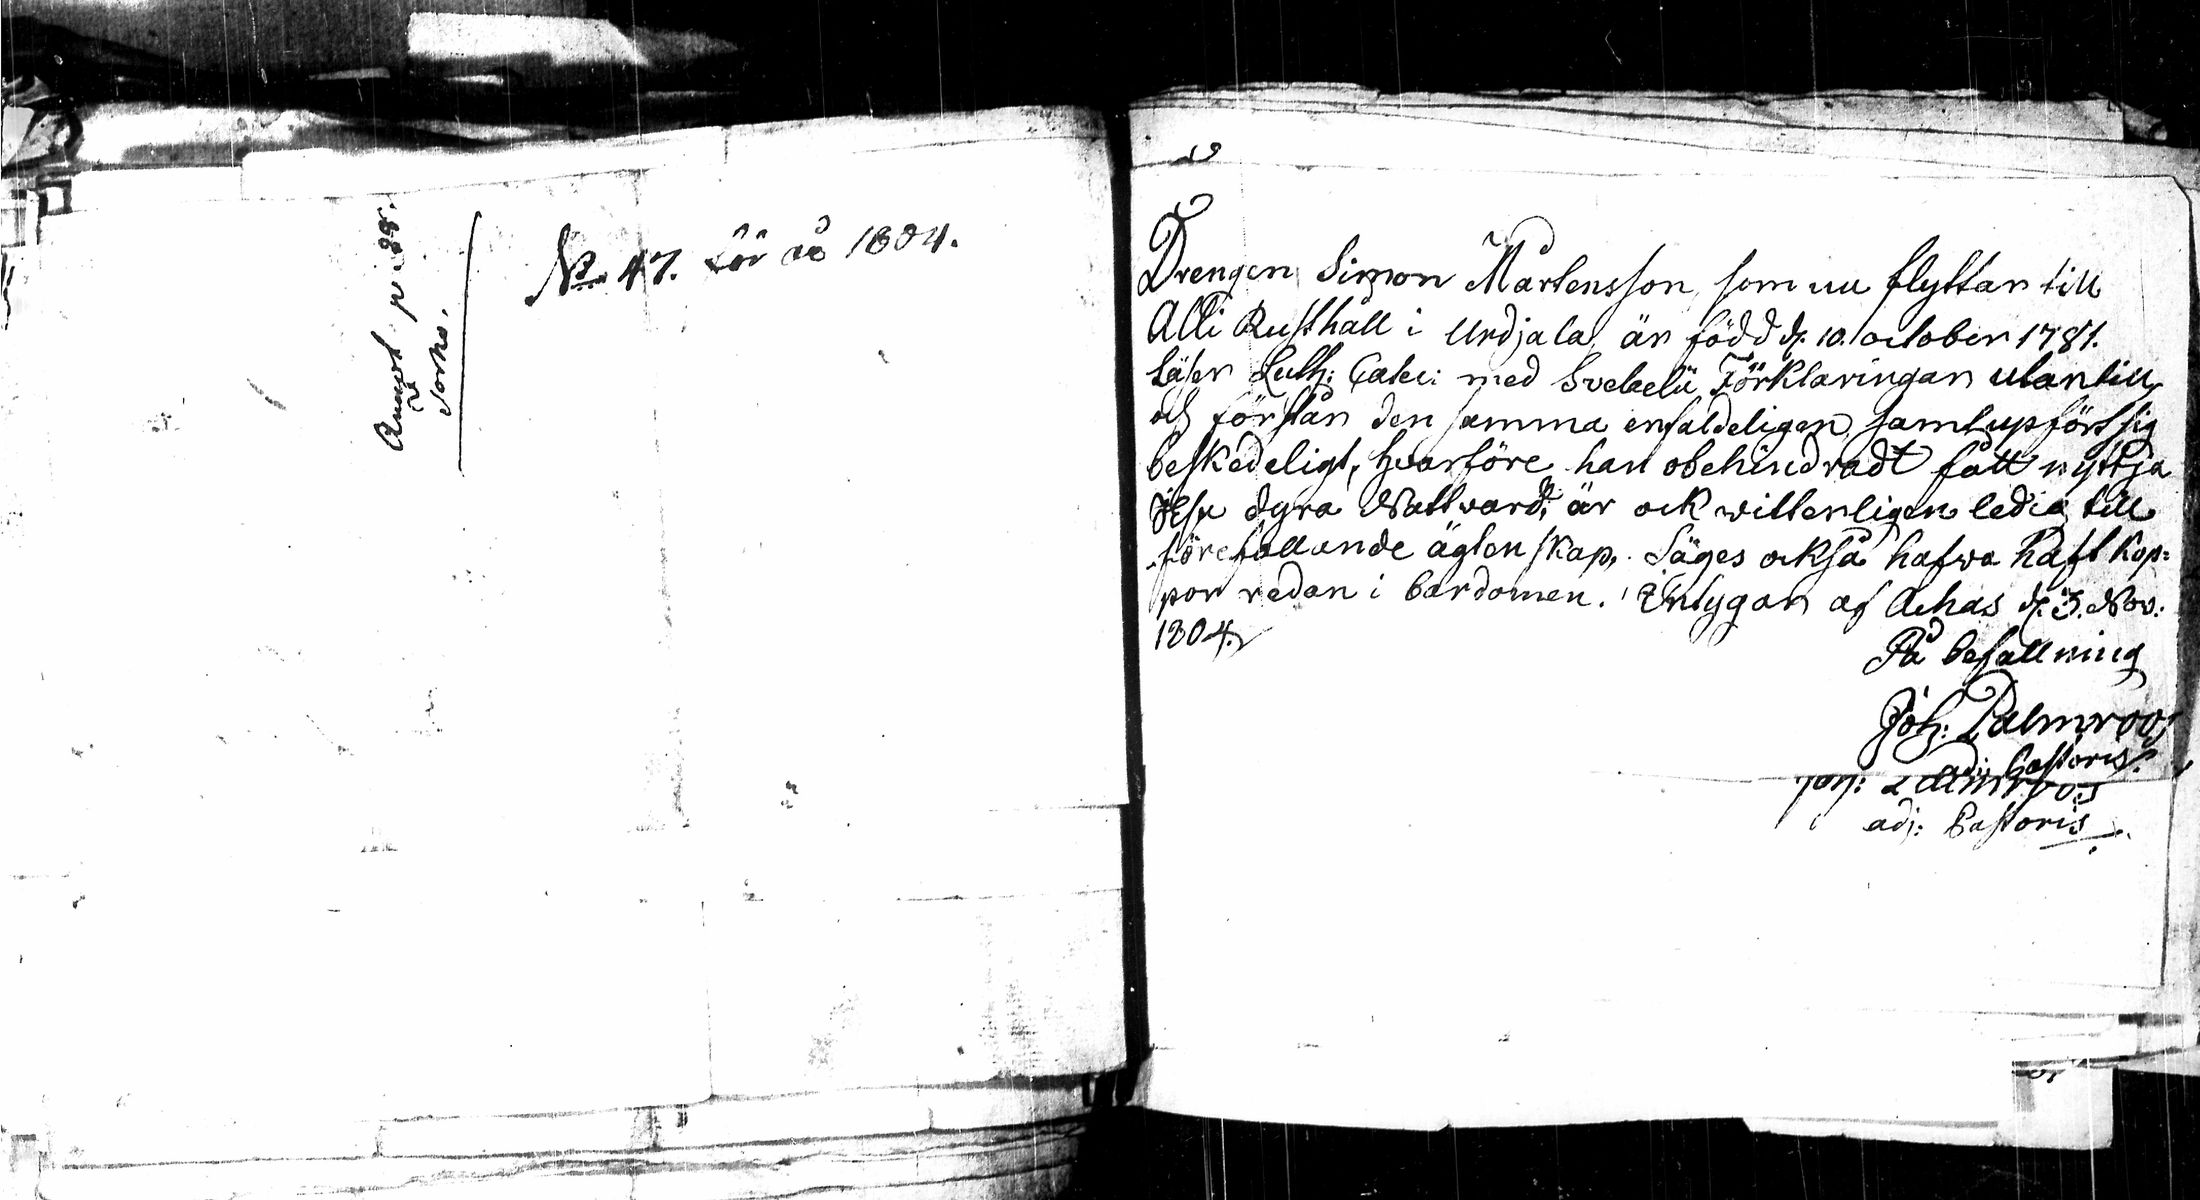 No 47. för år 1804.
Drengen Simon Mårtensson, som nu flyttar till
Alli Rusthåll i Urdjala, är född d. 10. october 1781.
Läser Luth: Catec: med Svebelii Förklaringar utantill,
och förstår den samma enfaldeligen, samt upfört sig
beskedeligt, hvarföre han obehindradt fått nyttja
Jesu dyra Nattvard; är ock witterligen ledig till
förefallande ägtenskap. Säges också hafwa haft kop-
por redan i barndomen. Intygar af Achas d. 3. Nov:
1804.
På befallning
Joh: Palmroos
adj: Pastoris.
Joh: Palmroos
adj: Pastoris